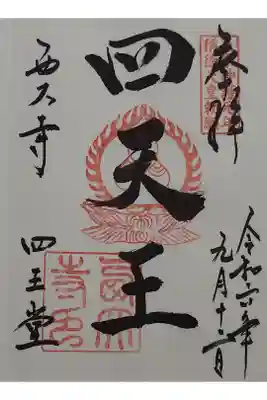 奉拝
令和六年
九月十二日
四天王
西大寺
四王堂